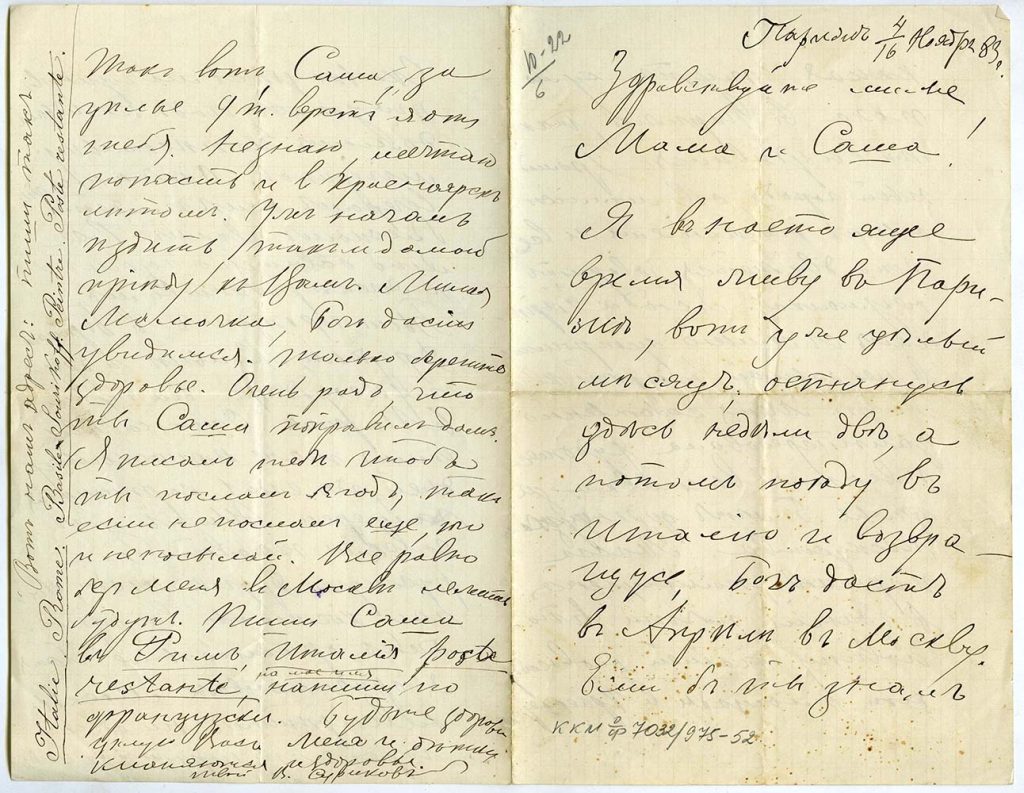 Парижъ 4/16 Ноября 83 г.
Здравствуйте милые
Мама и Саша!
Я въ настоящее
время живу въ Пари-
жѣ, вотъ уже цѣлый
мѣсяцъ, останусь
здѣсь недѣли двѣ, а
потомъ поѣду въ
Италію и возвра-
щусь, Богъ дастъ
въ Апрѣлѣ въ Москву.
Если бъ ты зналъ
ККМ о/ф 7032/975-52
10-22
6
Такъ вотъ Саша, за
цѣлые 9 т. верстъ я отъ
тебя. Незнаю, мечтаю
попасть и в Красноярскъ
лѣтомъ. Ужъ началъ
ѣздить, такъ и домой
пріѣду къ Вамъ. Милая
Мамочка, Богъ дастъ
увидимся. только берегите
здоровье. Очень радъ что
ты Саша поправилъ домъ.
Я писалъ тебѣ чтобъ
ты послалъ ягодъ, такъ
если не послалъ еще, то
и непосылай. Все равно
безъ меня въ Москвѣ лежать
будутъ. Пиши Саша
въ Римъ, Италія poste
restante, на мое имя напиши по
французски. Будьте здоровы
цѣлую Васъ
кланяются и здоровья.
твой В. Суриковъ
Вотъ нашъ адресъ: пиши такъ:
Italie. Rome. Basile Sourikoff. Peintre. Poste restante.